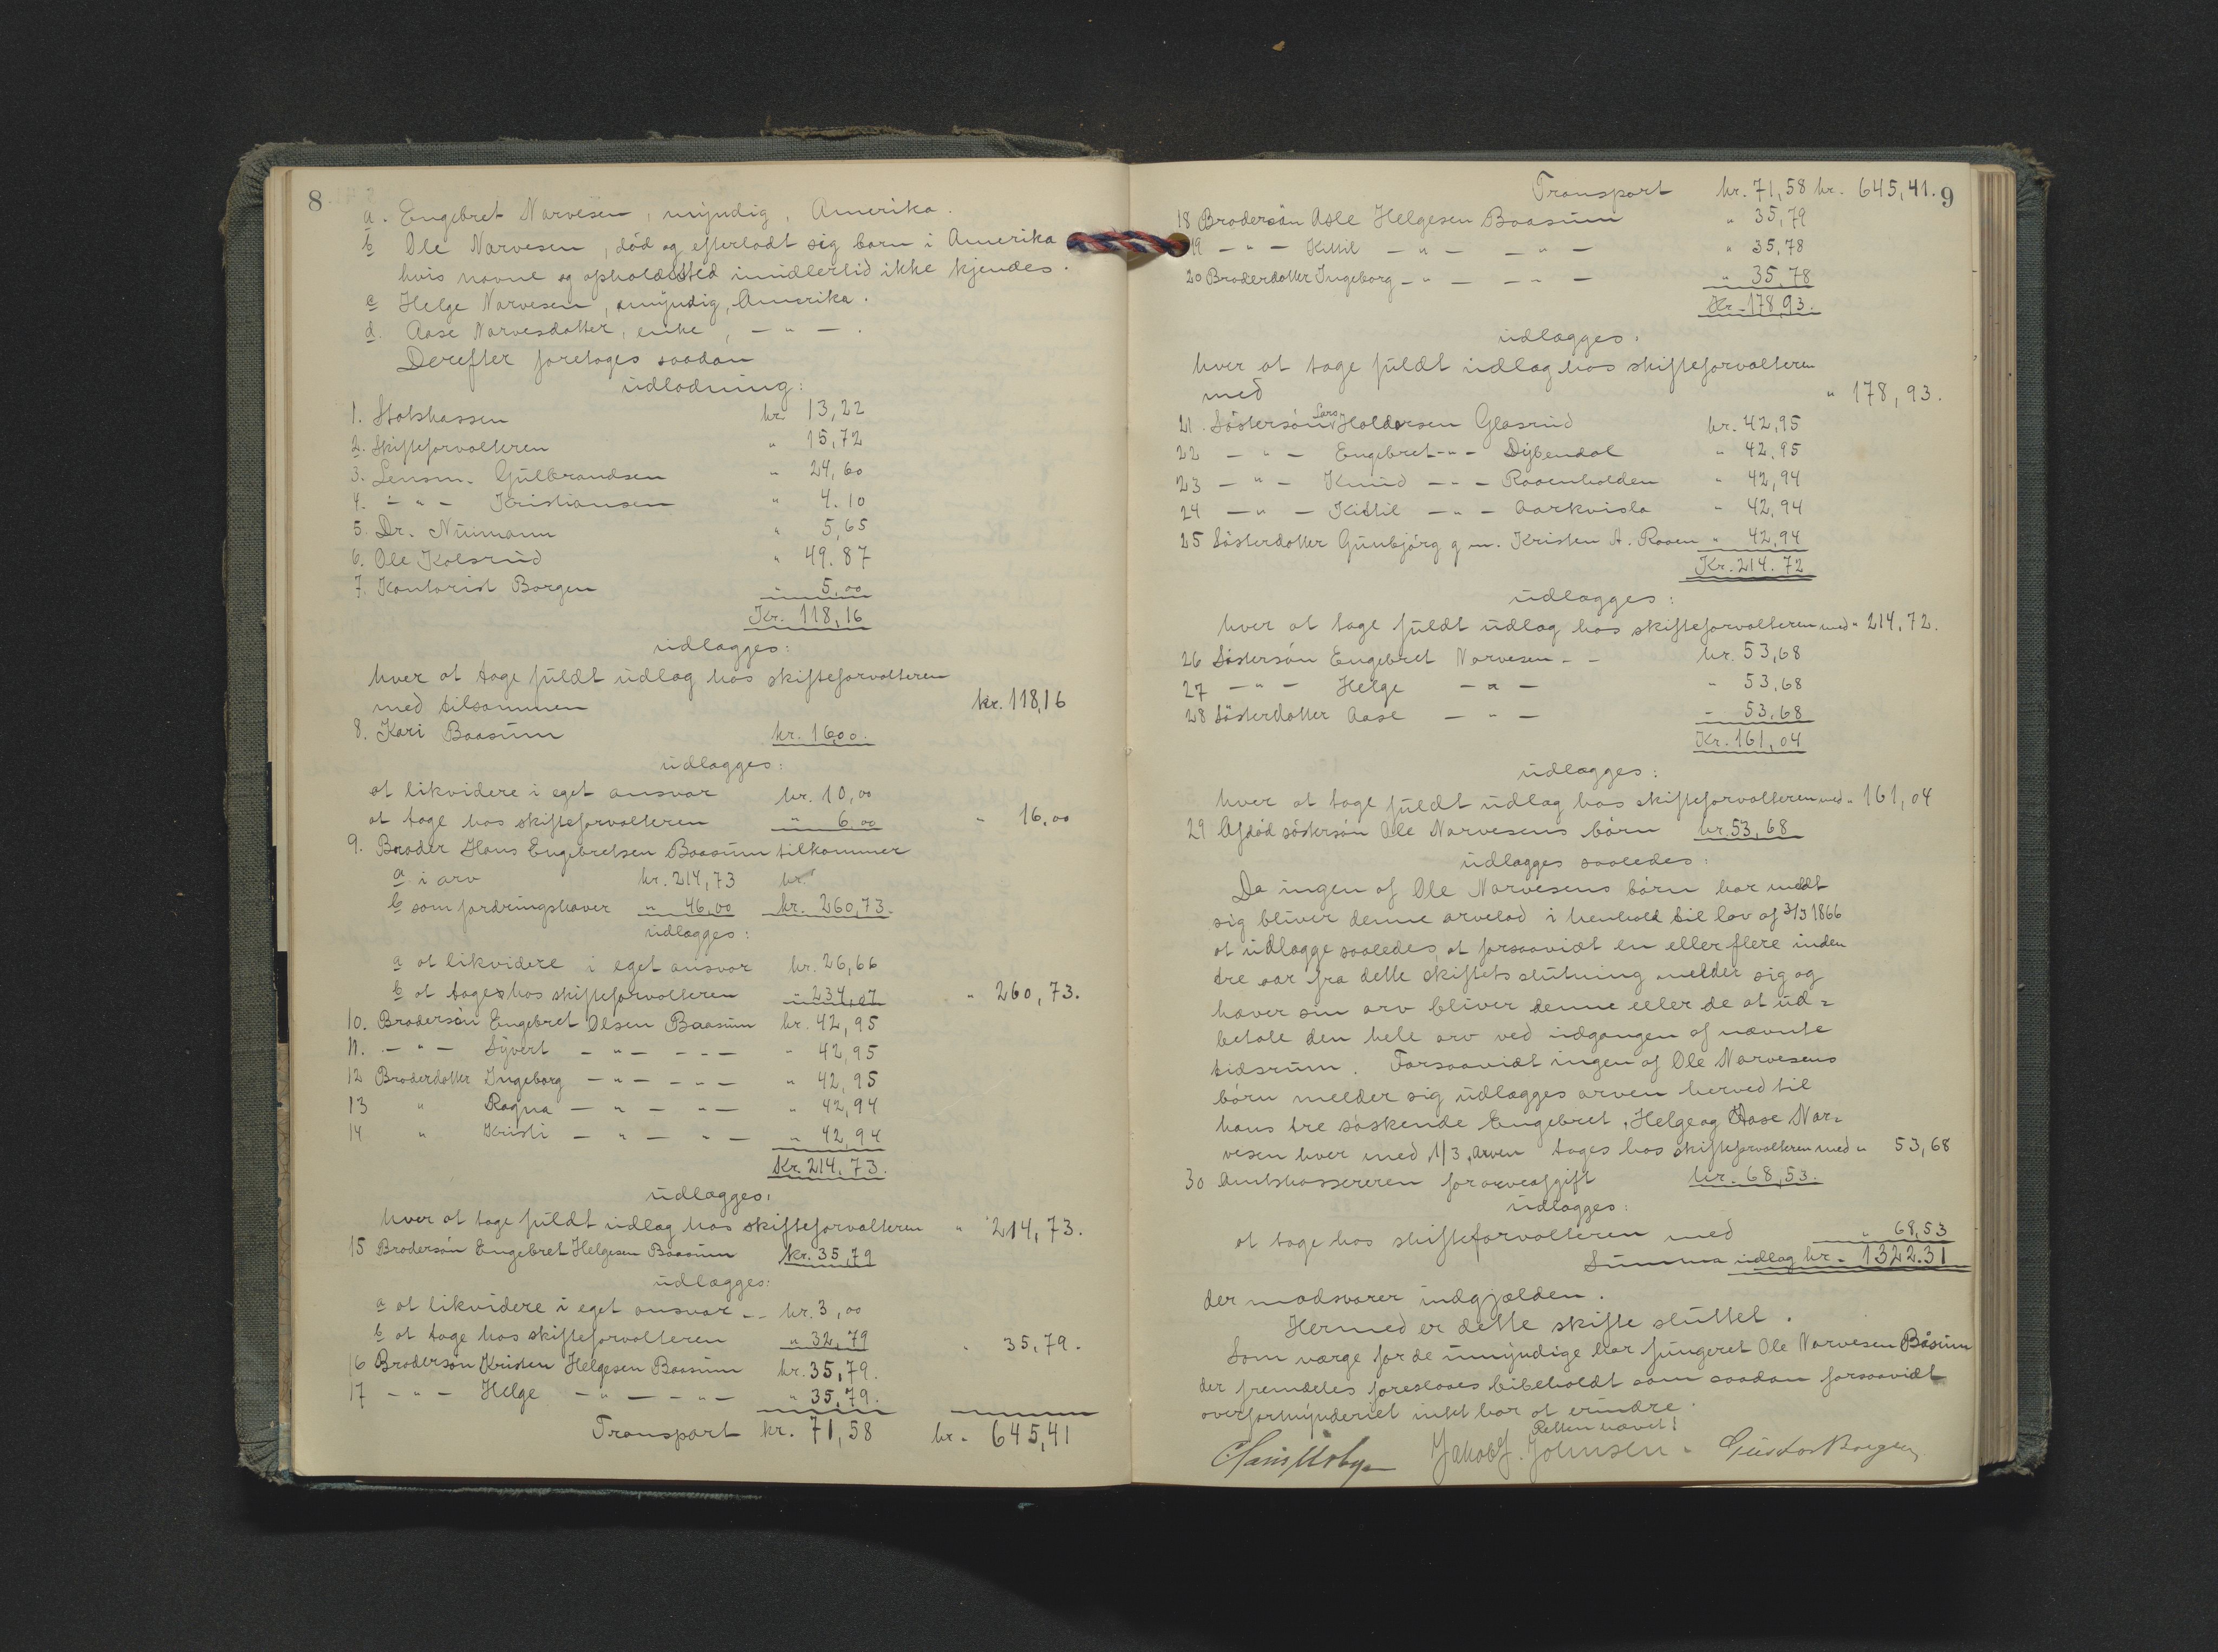 8
a. Engebret Narvesen, myndig, Amerika.
b Ole Narvesen, död og efterladt sig barn i Amerika
hvis navne og opholdssted imidlertid ikke kjendes.
c Helge Narvesen, myndig, Amerika.
d. Aase Narvesdatter, enke, — " — .
Derefter foretoges saadan
udlodning:
1. Statskassen kr. 13,22
2. Skifteforvalteren " 15,72
3. Lensm. Gulbrandsen " 24,60
4. — " — Kristiansen " 4.10
5. Dr. Numann " 5,65
6. Ole Kolsrud " 49.87
7. Kontorist Borgen " 5,00
Kr. 118,16
udlægges:
hver at tage fuldt udlæg hos skifteforvalteren
med tilsammen kr. 118,16
8. Kari Baasum kr. 16,00.
udlægges:
at likvidere i eget ansvar kr. 10,00
at tage hos skifteforvalteren " 6,00 " 16,00
9. Broder Hans Engebretsen Baasum tilkommer
a i arv kr. 214,73 kr.
b som fordringshaver " 46,00 kr. 260,73.
udlægges:
a at likvidere i eget ansvar kr. 26,66
b at tages hos skifteforvalteren " 234,07 " 260,73.
10. Brodersön Engebret Olsen Baasum kr. 42,95
11. — " — Syvert — " — — " — " 42,95
12 Broderdatter Ingeborg — " — — " — " 42,95
13 " Ragna — " — " — " 42,94
14 " Kristi — " — " — " 42,94
Kr. 214,73.
udlægges:
hver at tage fuldt udlæg hos skifteforvalteren " 214,73.
15 Brodersön Engebret Helgesen Baasum kr. 35,79
udlægges:
a at likvidere i eget ansvar — kr. 3,00
b at tage hos skifteforvalteren " 32,79 " 35,79.
16 Brodersön Kristen Helgesen Baasum kr. 35,79.
17 — " — Helge — " — — " — " 35,79.
Transport kr. 71,58 kr. 645,41
9
Transport kr. 71,58 kr. 645,41.
18 Brodersön Asle Helgesen Baasum " 35,79
19 — " — Kittil — " — — " — " 35,78
20 Broderdatter Ingeborg — " — — " — " 35,78
Kr. 178,93.
udlægges:
hver at tage fuldt udlæg hos skifteforvalteren
med " 178,93.
21. Söstersön Lars Haldorsen Glasrud kr. 42,95
22 — " — Engebret — " — Dybendal " 42,95
23 — " — Knud — " — Raaenholden " 42,94
24 — " — Kittil — " — Aarkvisla " 42,94
25 Sösterdatter Gunbjörg g m. Kristen A. Raaen " 42,94
Kr. 214.72
udlægges:
hver at tage fuldt udlæg hos skifteforvalteren med " 214,72.
26 Söstersön Engebret Narvesen — — kr. 53,68
27 — " — Helge — " — " 53,68
28 Sösterdatter Aase — " — " 53,68
Kr. 161,04
udlægges:
hver at tage fuldt udlæg hos skifteforvalteren med " 161,04
29 Afdöd söstersön Ole Narvesens börn kr. 53,68
udlægges saaledes:
Da ingen af Ole Narvesens börn har meldt
sig bliver denne arvelod i henhold til lov af 3/3 1866
at udlægge saaledes, at forsaavidt en eller flere inden
tre aar fra dette skiftets slutning melder sig og
hæver sin arv bliver denne eller de at ud-
betale den hele arv ved udgangen af nævnte
tidsrum. Forsaavidt ingen af Ole Narvesens
börn melder sig udlægges arven herved til
hans tre söskende Engebret, Helge og Aase Nar-
vesen hver med 1/3, Arven tages hos skifteforvalteren med " 53,68
30 Amtskassereren for arveafgift kr. 68,53.
udlægges:
at tage hos skifteforvalteren med " 68,53
Summa udlæg kr. 1322.31
der modsvarer indgjælden.
Hermed er dette skifte sluttet.
Som værge for de umyndige har fungeret Ole Narvesen Båsum
der fremdeles foreslaaes bibeholdt som saadan forsaavidt
overformynderiet intet har at erindre.
Retten hævet!
Jakob J. Johnsen. Gustav Borgen